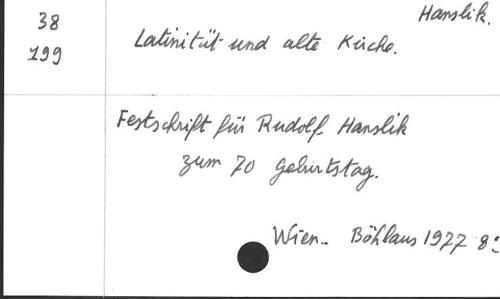 38
199
Hanslik.
Latinität und alte Kirche.
Festschrift für Rudolf Hanslik
zum 70 Geburtstag.
Wien- Böhlaus 1977 8: